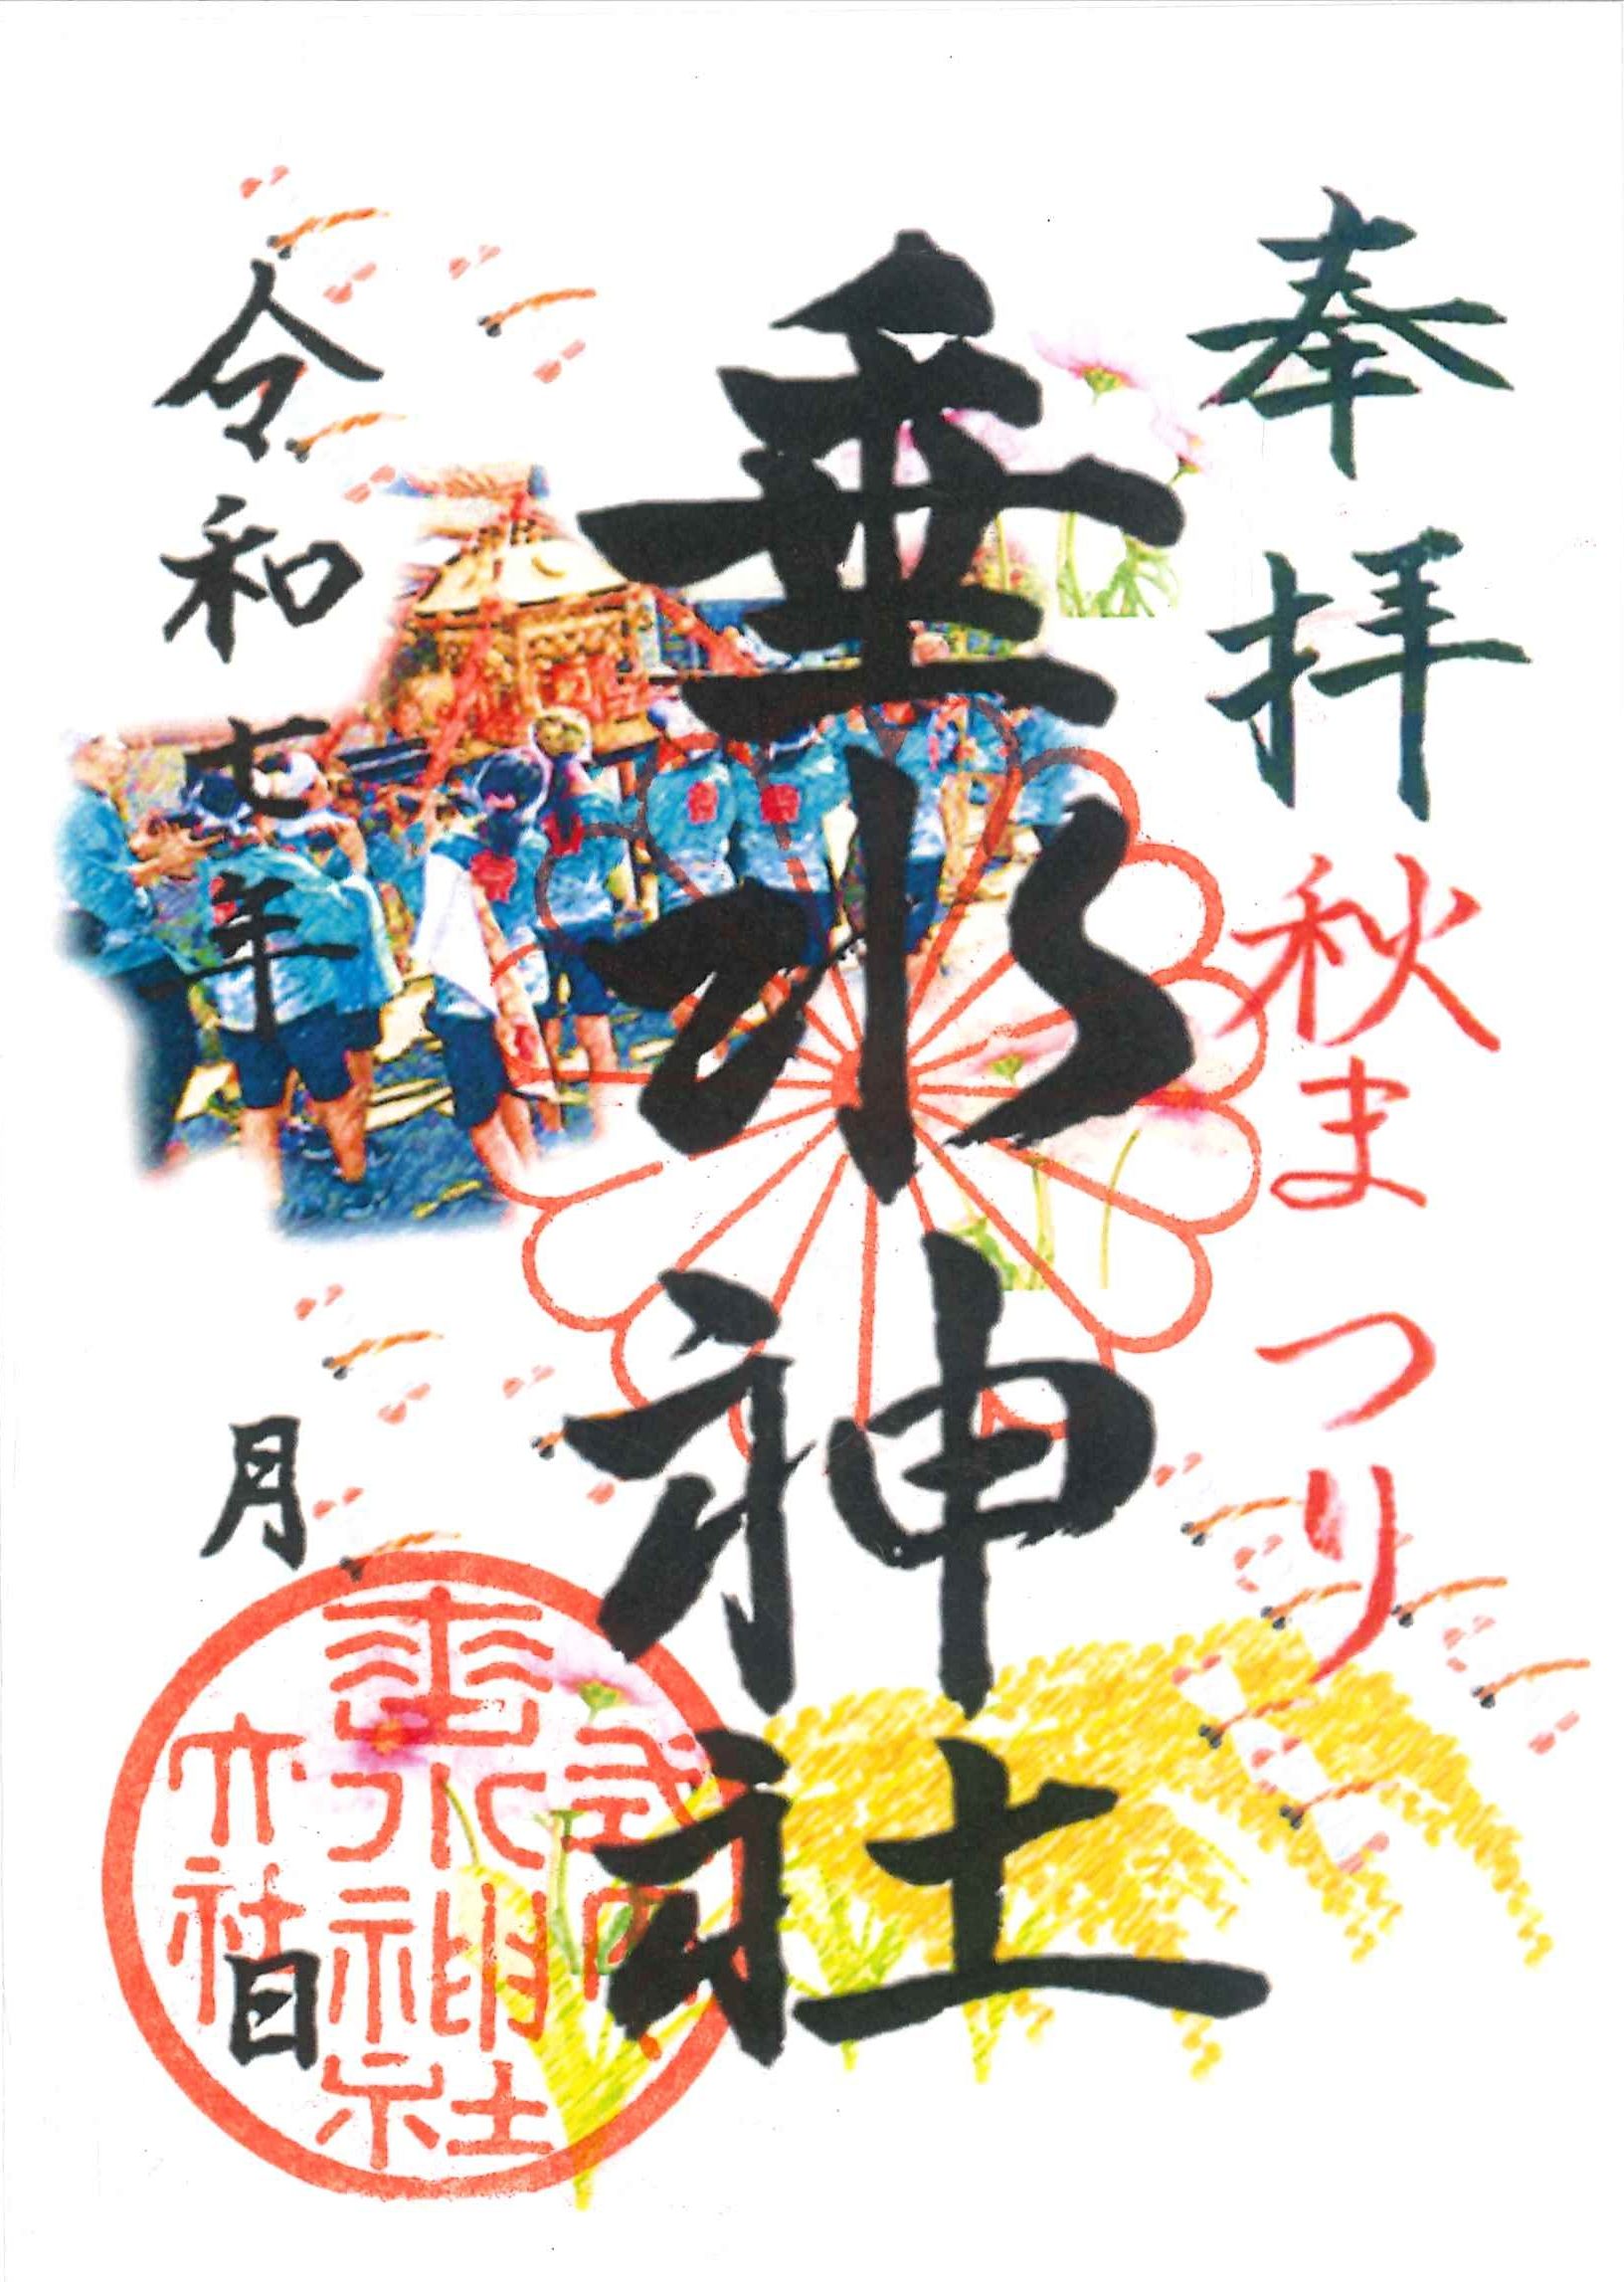 奉拝
秋まつり
垂水神社
令和七年
月
日
式内
垂水神社
大社